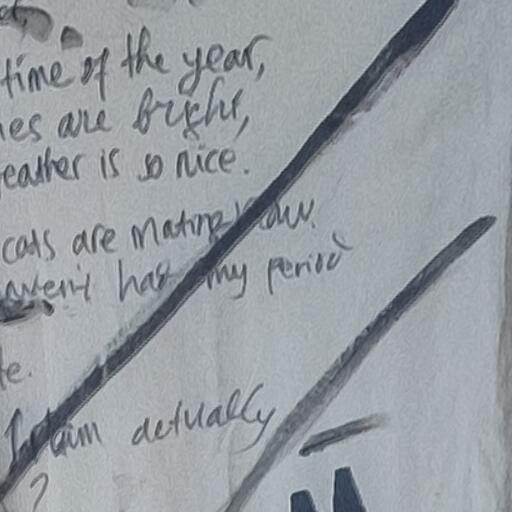 time of the year,
are bright,
is so nice.
cats are mating now.
haven't had my period
te.
I claim actually
?